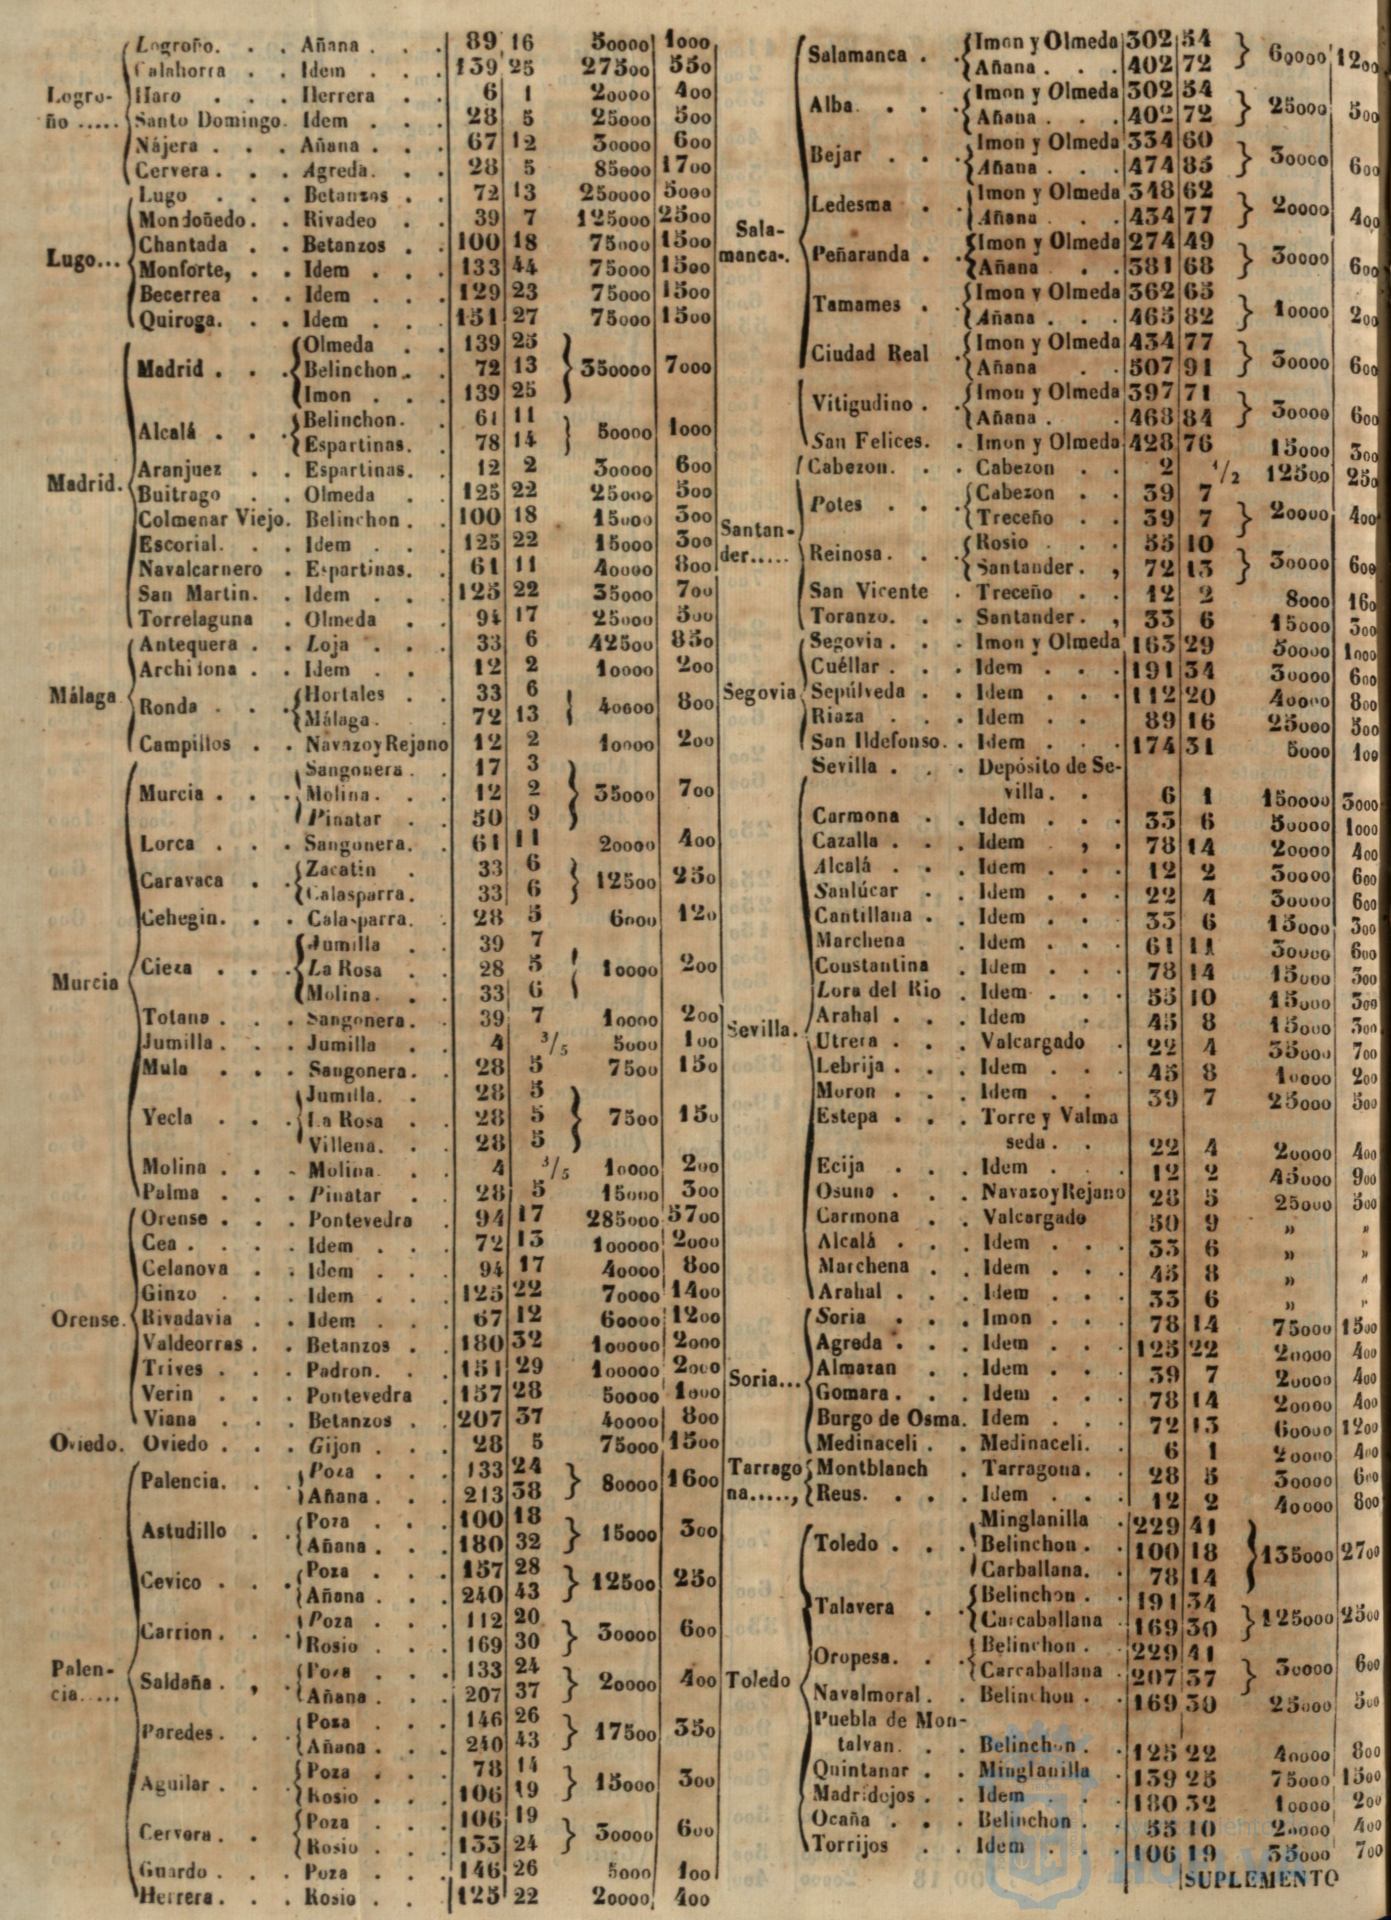 Logroño. . . Añana . . . 89 16 50000 1000
Calahorra . . Idem . . . 139 25 27500 550
Logro- Haro . . . Herrera . . 6 1 20000 400
ño ..... Santo Domingo. Idem . . . 28 5 25000 500
Nájera . . . Añana . . . 67 12 30000 600
Cervera . . . Agreda. . . 28 5 85000 1700
Lugo . . . Betanzos . . 72 13 250000 5000
Mondoñedo. . Rivadeo . . 39 7 125000 2500
Chantada . . Betanzos . . 100 18 75000 1500
Lugo... Monforte, . . Idem . . . 133 44 75000 1500
Becerrea . . Idem . . . 129 23 75000 1500
Quiroga. . . Idem . . . 151 27 75000 1500
Olmeda . . 139 25
Madrid . . . Belinchon. . 72 13 350000 7000
Imon . . . 139 25
Belinchon. . 61 11
Alcalá . . . 50000 1000
Espartinas. . 78 14
Aranjuez . . Espartinas. . 12 2 30000 600
Madrid. Buitrago . . Olmeda . . 125 22 25000 500
Colmenar Viejo. Belinchon . . 100 18 15000 300
Escorial. . . Idem . . . 125 22 15000 300
Navalcarnero . Espartinas. . 61 11 40000 800
San Martin. . Idem . . . 125 22 35000 700
Torrelaguna . Olmeda . . 94 17 25000 500
Antequera . . Loja . . . 33 6 42500 850
Archidona . . Idem . . . 12 2 10000 200
Málaga Hortales . . 33 6
Ronda . . . 40000 800
Málaga. . . 72 13
Campillos . . Navazo y Rejano 12 2 10000 200
Sangonera . . 17 3
Murcia . . . Molina. . . 12 2 35000 700
Pinatar . . 50 9
Lorca . . . Sangonera. . 61 11 20000 400
Zacatin . 33 6
Caravaca . . 12500 250
Calasparra. . 33 6
Cehegin. . . Calasparra. . 28 5 6000 120
Jumilla . . 39 7
Murcia Cieza . . . La Rosa . . 28 5 10000 200
Molina. . . 33 6
Totana . . . Sangonera. . 39 7 10000 200
Jumilla. . . Jumilla . . 4 3/5 5000 100
Mula . . . Sangonera. . 28 5 7500 150
Jumilla. . 28 5
Yecla . . . La Rosa . . 28 5 7500 150
Villena. . . 28 5
Molina . . . Molina. . . 4 3/5 10000 200
Palma . . . Pinatar . . 28 5 15000 300
Orense . . . Pontevedra 94 17 285000 5700
Cea . . . . Idem . . . 72 13 100000 2000
Celanova . . Idem . . . 94 17 40000 800
Ginzo . . . Idem . . . 125 22 70000 1400
Orense. Rivadavia . . Idem . . . 67 12 60000 1200
Valdeorras . . Betanzos . . 180 32 100000 2000
Trives . . . Padron. . . 151 29 100000 2000
Verin . . . Pontevedra 157 28 50000 1000
Viana . . . Betanzos . . 207 37 40000 800
Oviedo. Oviedo . . . Gijon . . . 28 5 75000 1500
Poza . . . 133 24
Palencia. . . 80000 1600
Añana . . . 213 38
Poza . . . 100 18
Astudillo . . 15000 300
Añana . . . 180 32
Poza . . . 157 28
Cevico . . . 12500 250
Añana . . . 240 43
Poza . . . 112 20
Carrion. . . 30000 600
Rosio . . . 169 30
Palen- Poza . . . 133 24
cia..... Saldaña . , 20000 400
Añana . . . 207 37
Poza . . . 146 26
Paredes. . . 17500 350
Añana . . . 240 43
Poza . . . 78 14
Aguilar. . . 15000 300
Rosio . . . 106 19
Poza . . . 106 19
Cervera. . . 30000 600
Rosio . . . 133 24
Guardo . . . Poza . . . 146 26 5000 100
Herrera. . . Rosio . . . 125 22 20000 400
Imon y Olmeda 302 54
Salamanca . . 60000 1200
Añana . . . 402 72
Imon y Olmeda 302 54
Alba. . . . 25000 500
Añana . . . 402 72
Imon y Olmeda 334 60
Bejar . . . 30000 600
Añana . . . 474 85
Imon y Olmeda 348 62
Ledesma . . 20000 400
Añana . . . 434 77
Sala- Imon y Olmeda 274 49
manca-. Peñaranda . . 30000 600
Añana . . 381 68
Imon y Olmeda 362 65
Tamames . . 10000 200
Añana . . . 465 82
Imon y Olmeda 434 77
Ciudad Real 30000 600
Añana . . 507 91
Imon y Olmeda 397 71
Vitigudino . . 30000 600
Añana . . . 468 84
San Felices. . Imon y Olmeda 428 76 15000 300
Cabezon. . . Cabezon . . 2 1/2 12500 250
Cabezon . . 39 7
Potes . . . 20000 400
Santan- Treceño . . 39 7
der..... Rosio . . . 55 10
Reinosa. . . 30000 600
Santander. , 72 13
San Vicente . Treceño . . 12 2 8000 160
Toranzo. . . Santander. , 33 6 15000 300
Segovia . . . Imon y Olmeda 163 29 50000 1000
Cuéllar . . . Idem . . . 191 34 30000 600
Segovia Sepúlveda . . Idem . . . 112 20 40000 800
Riaza . . . Idem . . . 89 16 25000 500
San Ildefonso. . Idem . . . 174 31 5000 100
Sevilla . . . Depósito de Se-
villa . . 6 1 150000 3000
Carmona . . Idem . . . 33 6 50000 1000
Cazalla . . . Idem , . 78 14 20000 400
Alcalá . . . Idem . . . 12 2 30000 600
Sanlúcar . . Idem . . . 22 4 30000 600
Cantillana . . Idem . . . 33 6 15000 300
Marchena . Idem . . . 61 11 30000 600
Constantina . Idem . . . 78 14 15000 300
Lora del Rio . Idem . . . 55 10 15000 300
Sevilla. Arahal . . . Idem . 45 8 15000 300
Utrera . . . Valcargado . 22 4 35000 700
Lebrija . . . Idem . . . 45 8 10000 200
Moron . . . Idem . . . 39 7 25000 500
Estepa . . . Torre y Valma
seda . . 22 4 20000 400
Ecija . . . Idem . . 12 2 45000 900
Osuna . . . Navazo y Rejano 28 5 25000 500
Carmona . . Valcargado 50 9 » »
Alcalá . . . Idem . . . 33 6 » »
Marchena . . Idem . . . 45 8 » »
Arahal . . . Idem . . . 33 6 » »
Soria . . . Imon . . . 78 14 75000 1500
Agreda . . . Idem . . . 125 22 20000 400
Soria... Almazan . Idem . . . 39 7 20000 400
Gomara . . . Idem . . . 78 14 20000 400
Burgo de Osma. Idem . . . 72 13 60000 1200
Medinaceli . . Medinaceli. . 6 1 20000 400
Tarrago Montblanch . Tarragona. . 28 5 30000 600
na....., Reus. . . . Idem . . . 12 2 40000 800
Minglanilla . 229 41
Toledo . . . Belinchon . . 100 18 135000 2700
Carballana. . 78 14
Belinchon . . 191 34
Talavera . . 125000 2500
Carcaballana . 169 30
Belinchon . . 229 41
Oropesa. . . 30000 600
Carcaballana . 207 37
Toledo Navalmoral . . Belinchon . . 169 30 25000 500
Puebla de Mon-
talvan. . . Belinchon . . 125 22 40000 800
Quintanar . . Minglanilla . 139 25 75000 1500
Madridejos . . Idem . . . 180 32 10000 200
Ocaña . . . Belinchon . . 55 10 20000 400
Torrijos . . Idem . . . 106 19 35000 700
SUPLEMENTO